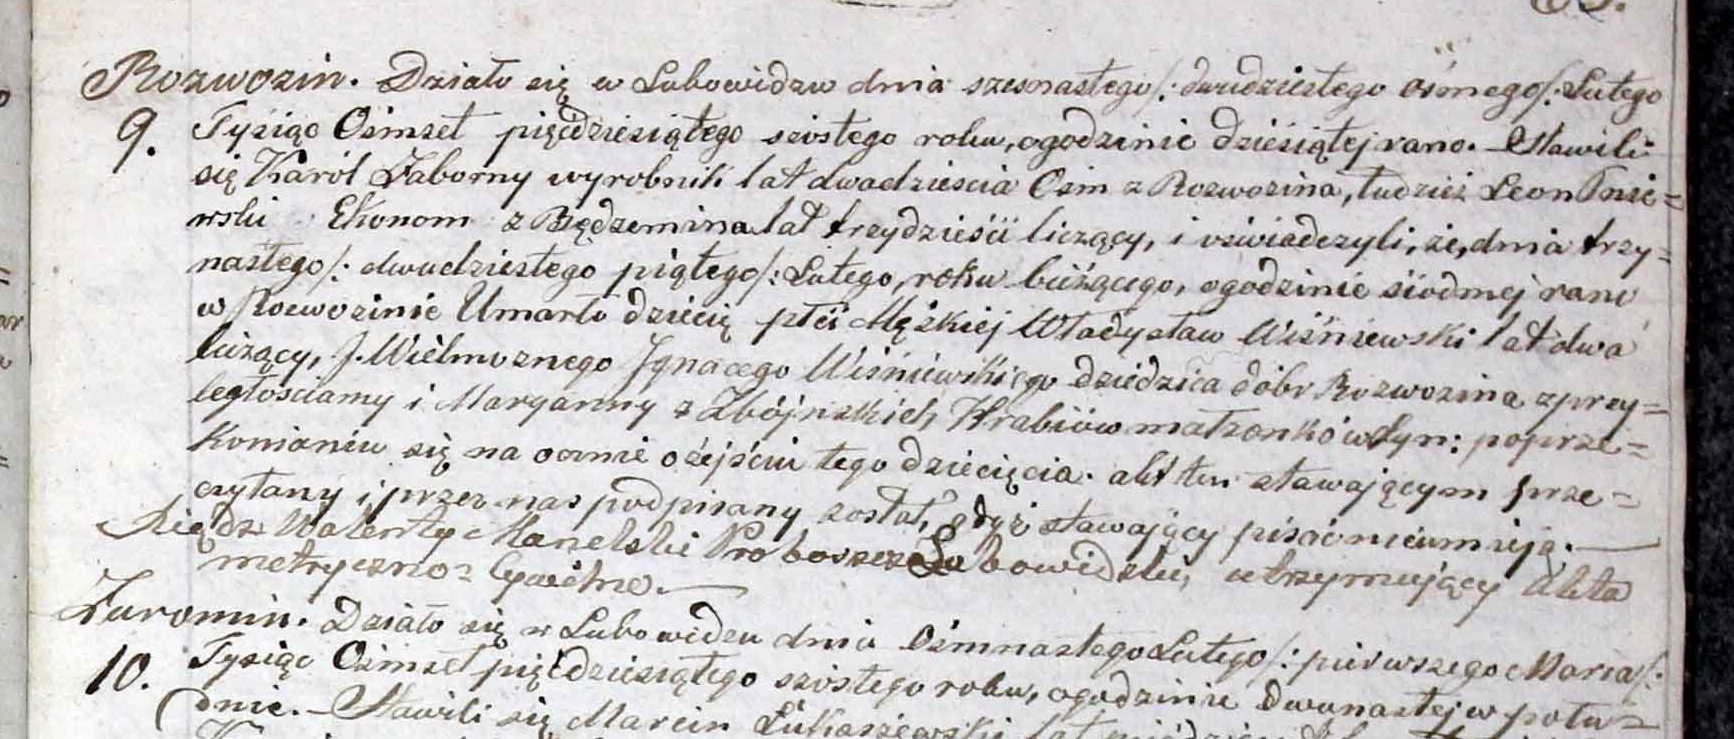 Rozwozin. Działo się w Lubowidzu dnia szesnastego/: dwudziestego ósmego/: Lutego
9. Tysiąc Ośmset pięćdziesiątego szóstego roku, o godzinie dziesiątej rano. Stawili
się Karól Zaborny wyrobnik lat dwadzieścia Ośm z Rozwozina, tudzież Leon
wski Ekonom z Będzemina lat trzydzieści liczący, i oświadczyli, że, dnia trzy=
nastego/: dwudziestego piątego/: Lutego, roku bieżącego, o godzinie siódmej rano
w Rozwozinie Umarło dziecię płci Męzkiej Władysław Wiśniewski lat dwa
liczący, J. Wielmożnego Ignacego Wiśniewskiego dziedzica dóbr Rozwozina z przy=
ległościamy i Maryanny z Zbójnskich Hrabiów małżonków Syn: po przeko=
konaniu się na ocznie o zejściu tego dziecięcia. akt ten stawającym prze=
czytany i przez nas podpisany został, gdyż stawający pisać nieumieją. —
Xiądz Walenty Manelski Proboszcz Lubowidzki, utrzymujący Akta
metryczno= Cywilne. —
Żuromin. Działo się w Lubowidzu dnia Ośmnastego Lutego/: pierwszego Marca/:
10. Tysiąc Ośmset pięćdziesiątego szóstego roku, o godzinie Dwunastej w połu=
dnie. — Stawili się Marcin Łukaszewski lat